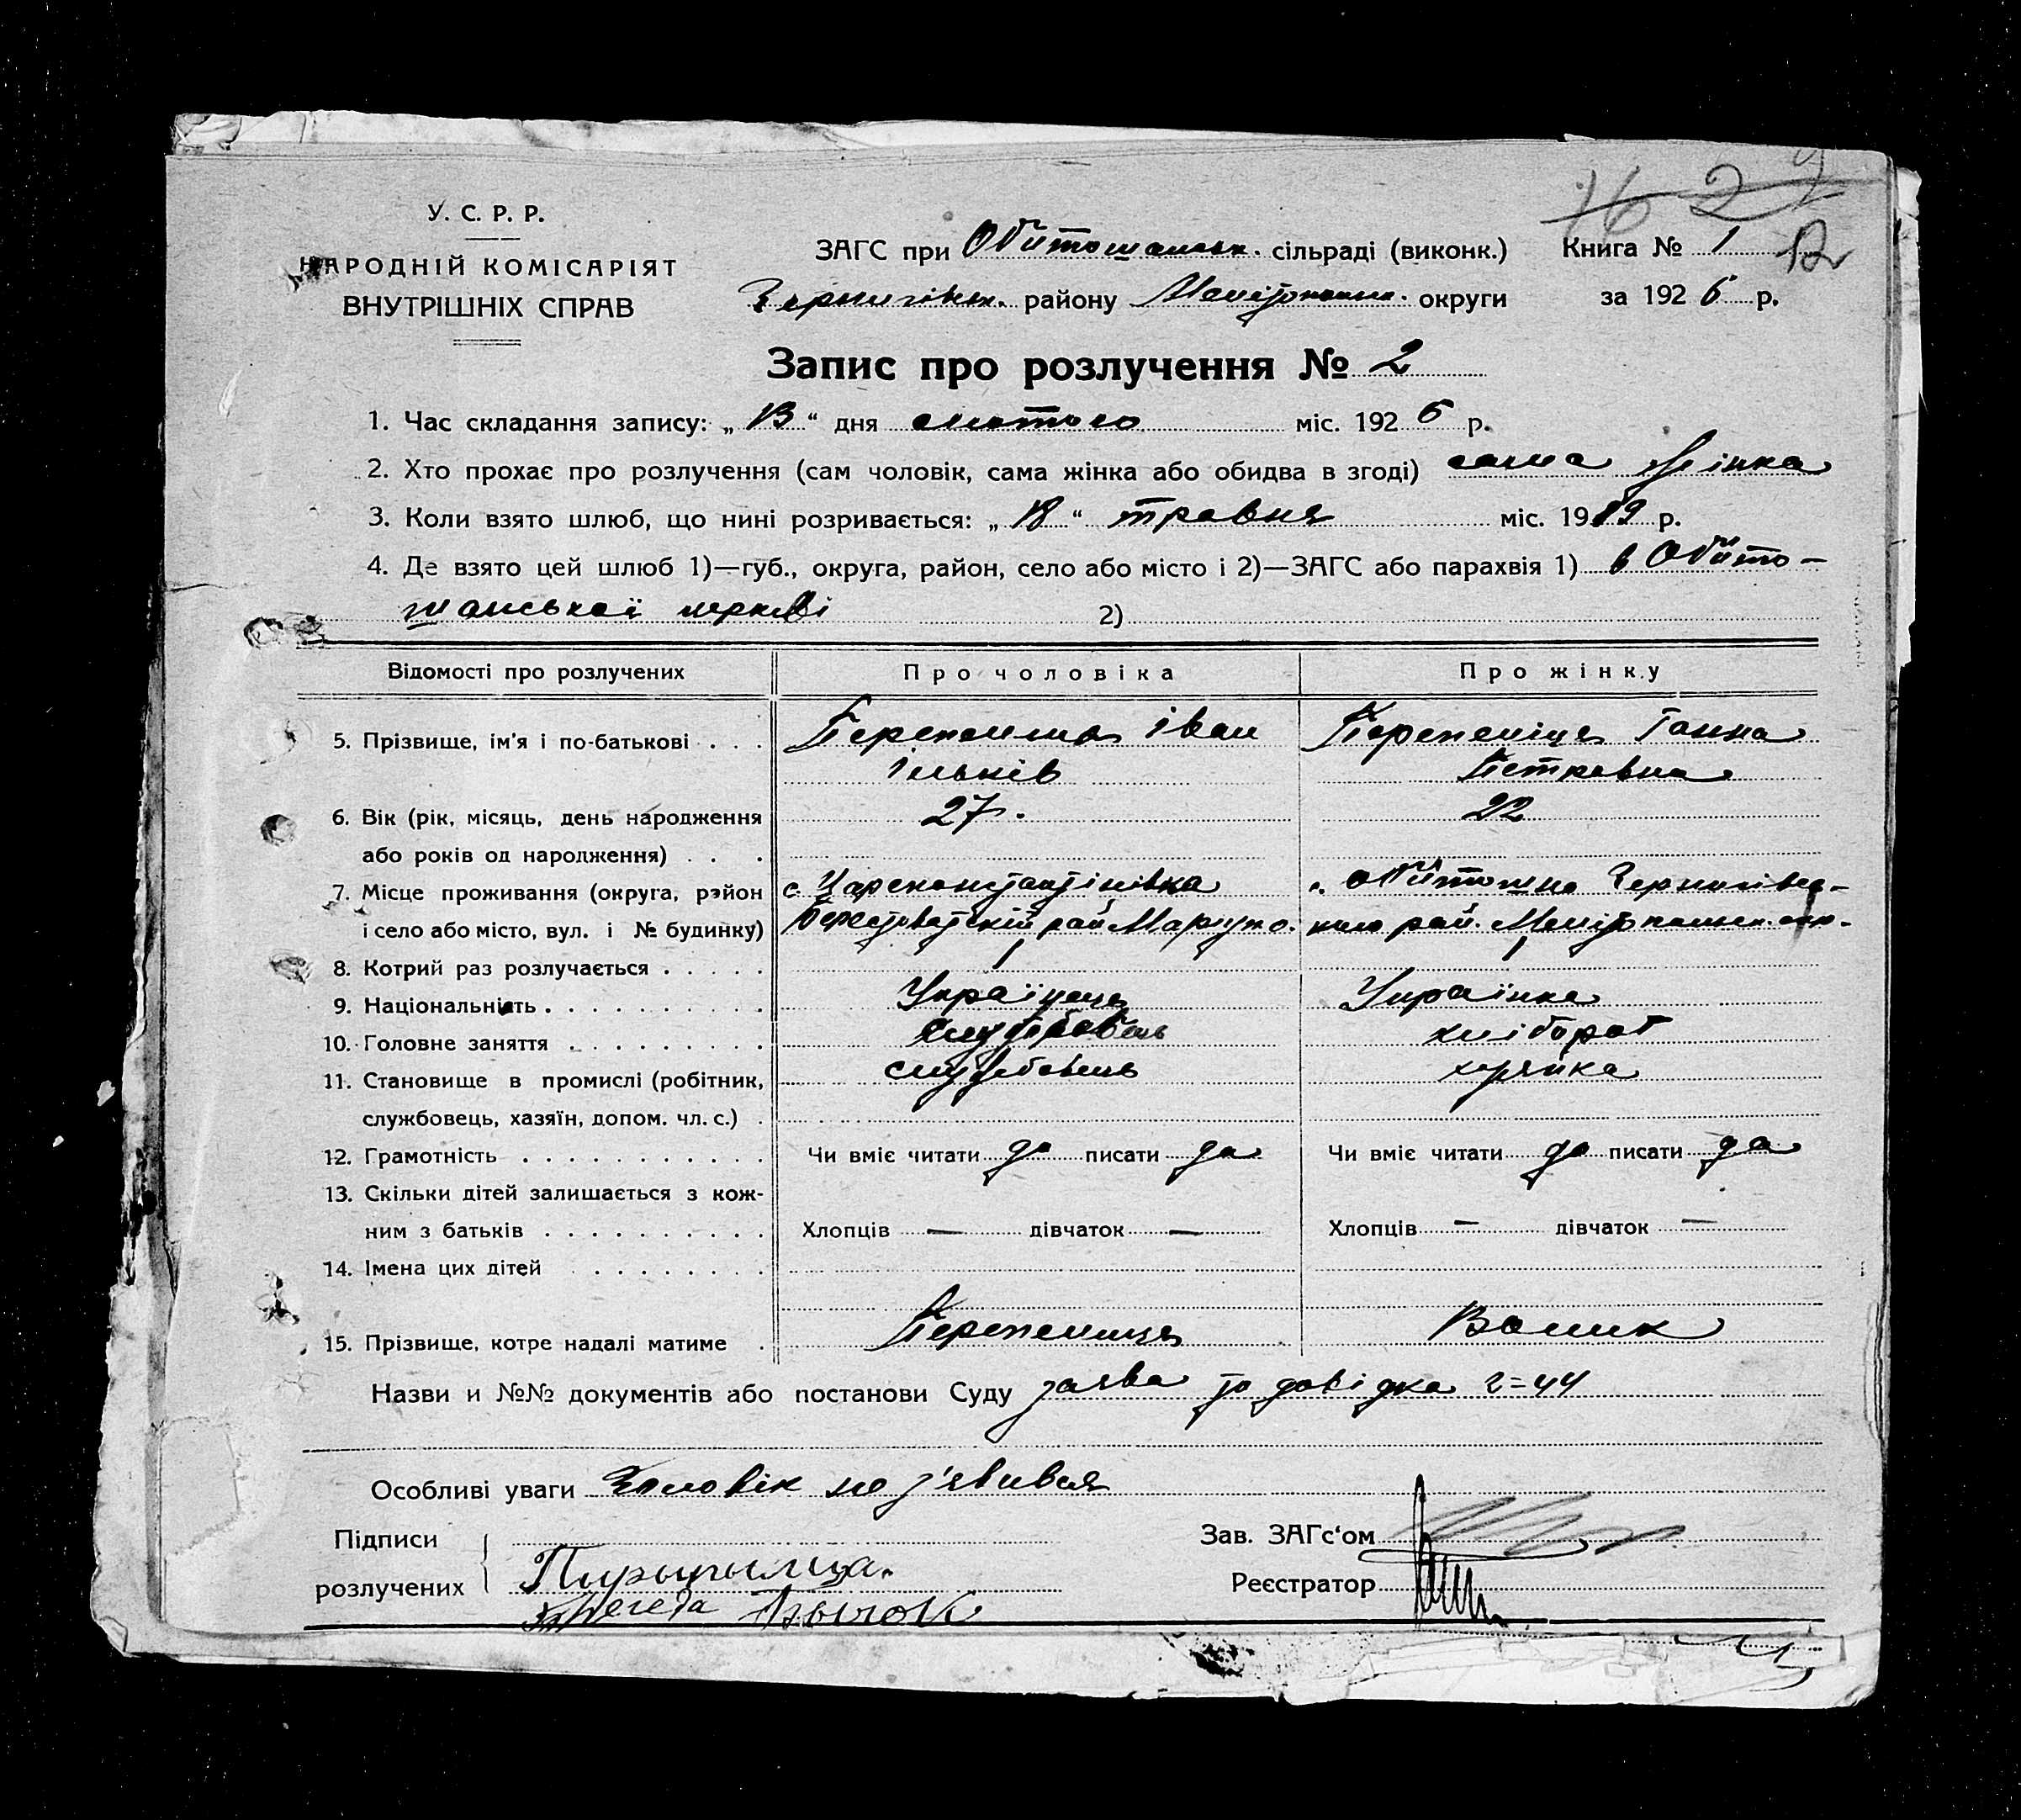 У. С. Р. Р.
НАРОДНІЙ КОМІСАРІЯТ
ВНУТРІШНІХ СПРАВ
ЗАГС при Обиточанськ. сільраді (виконк.) Книга № 1
району Мелітопольск. округи за 1926 р.
Запис про розлучення № 2
1. Час складання запису: „ 13 “ дня лютого міс. 1926 р.
2. Хто прохає про розлучення (сам чоловік, сама жінка або обидва в згоді) сама жінка
3. Коли взято шлюб, що нині розривається: „ 18 “ травня міс. 1919 р.
4. Де взято цей шлюб 1)—губ., округа, район, село або місто і 2)—ЗАГС або парахвія 1) в Обито-
чанської церкві 2)
Відомості про розлучених Про чоловіка Про жінку
5. Прізвище, ім'я і по-батькові . . . Перепелица Іван Перепеліця Ганна
Ільків Петровна
6. Вік (рік, місяць, день народження 27. 22
або років од народження) . . .
7. Місце проживання (округа, район с. Цареконстантінівка с. Обиточна Чернигівсь-
і село або місто, вул. і № будинку) рай Маріупо. кого рай. Мелітопольск. окр.
8. Котрий раз розлучається . . . . . 1 1
9. Національність . . . . . . . . . . Українець Українка
10. Головне заняття . . . . . . . . . службовець хлібороб
11. Становище в промислі (робітник, службовець хазяйка
службовець, хазяїн, допом. чл. с.) .
12. Грамотність . . . . . . . . . . . Чи вміє читати да писати да Чи вміє читати да писати да
13. Скільки дітей залишається з кож-
ним з батьків . . . . . . . . . . Хлопців — дівчаток — Хлопців — дівчаток —
14. Імена цих дітей . . . . . . . .
15. Прізвище, котре надалі матиме . Перепелица Волик
Назви и №№ документів або постанови Суду заява та довідка 2=44
Особливі уваги Чоловік не з'явився
Підписи Зав. ЗАГс‘ом
розлучених Реєстратор